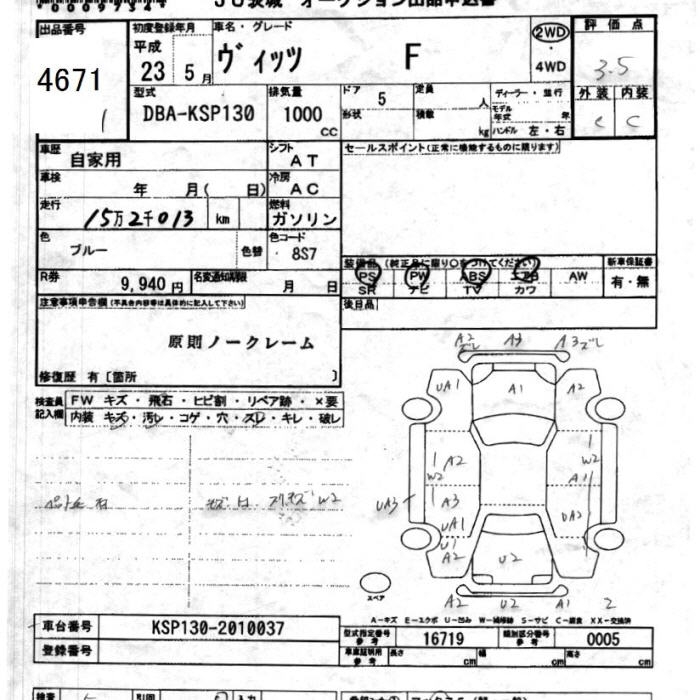 JU茨城 オークション出品申込書
出品番号 初度登録年月 車名・グレード 評価点
4671 平成 23 5月 ヴィッツ F 2WD 4WD 3.5
1
型式 DBA-KSP130 排気量 1000 cc
ドア 5 定員 人 ディーラー・並行
形状 積載 kg モデル年式 年 ハンドル 左・右
外装 内装
C C
車歴 自家用 シフト AT セールスポイント(正常に機能するものに限ります)
車検 年 月( 日) 冷房 AC
走行 15万2千013 km 燃料 ガソリン
色 ブルー 色替 色コード 8S7
装備品 (純正品に限り○をつけてください) 新車保証書
PS PW ABS エアB AW 有・無
SR ナビ TV カワ
R券 9,940円 名変通知期限 月 日
後日品
注意事項申告欄(不具合内容等は具体的に記入して下さい)
原則ノークレーム
修復歴 有[箇所 ]
検査員記入欄 FW キズ・飛石・ヒビ割・リペア跡・×要
内装 キズ・汚レ・コゲ・穴・スレ・キレ・破レ
A2 A3 A3ズレ
ズレ
UA1 A1 A2
A2 W2
W2 A1
UA3 A3
UA1 UA2
U1
A2 U2
スペア
A2 U2 A1 2
A-キズ E-エクボ U-凹み W-補修跡 S-サビ C-腐食 XX-交換済
車台番号 KSP130-2010037
登録番号
型式指定番号 参考 16719 類別区分番号 参考 0005
車庫証明用 参考 長さ cm 幅 cm 高さ cm